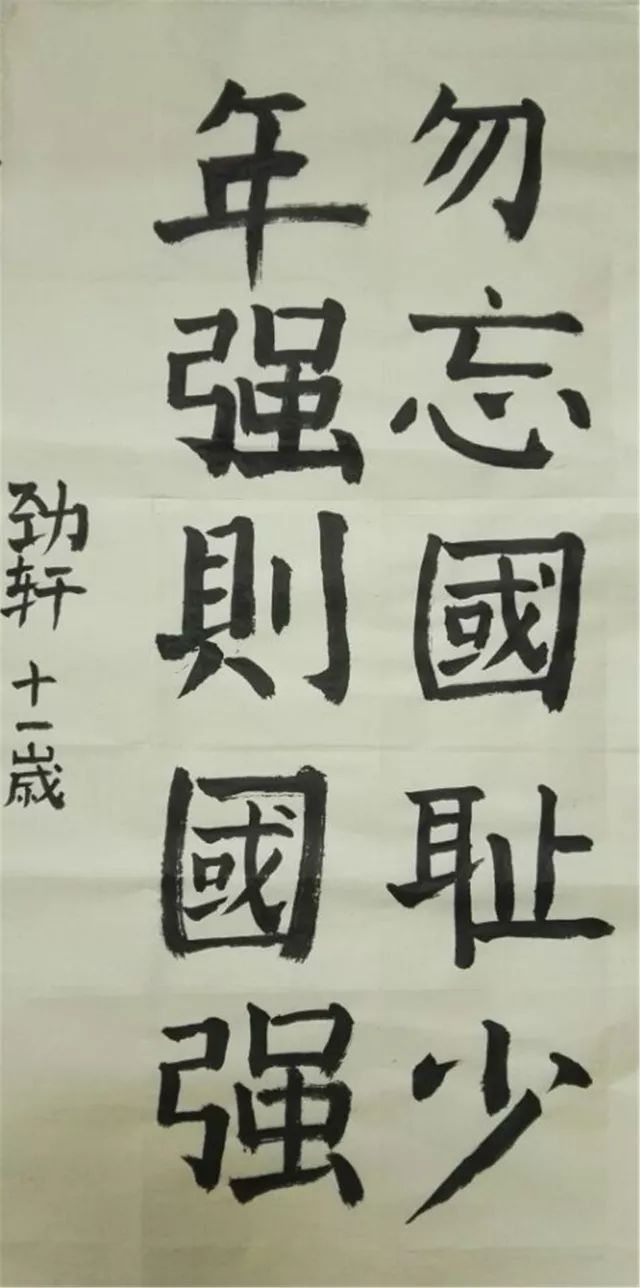 勿忘國耻少
年强則國强
劲轩 十一歳